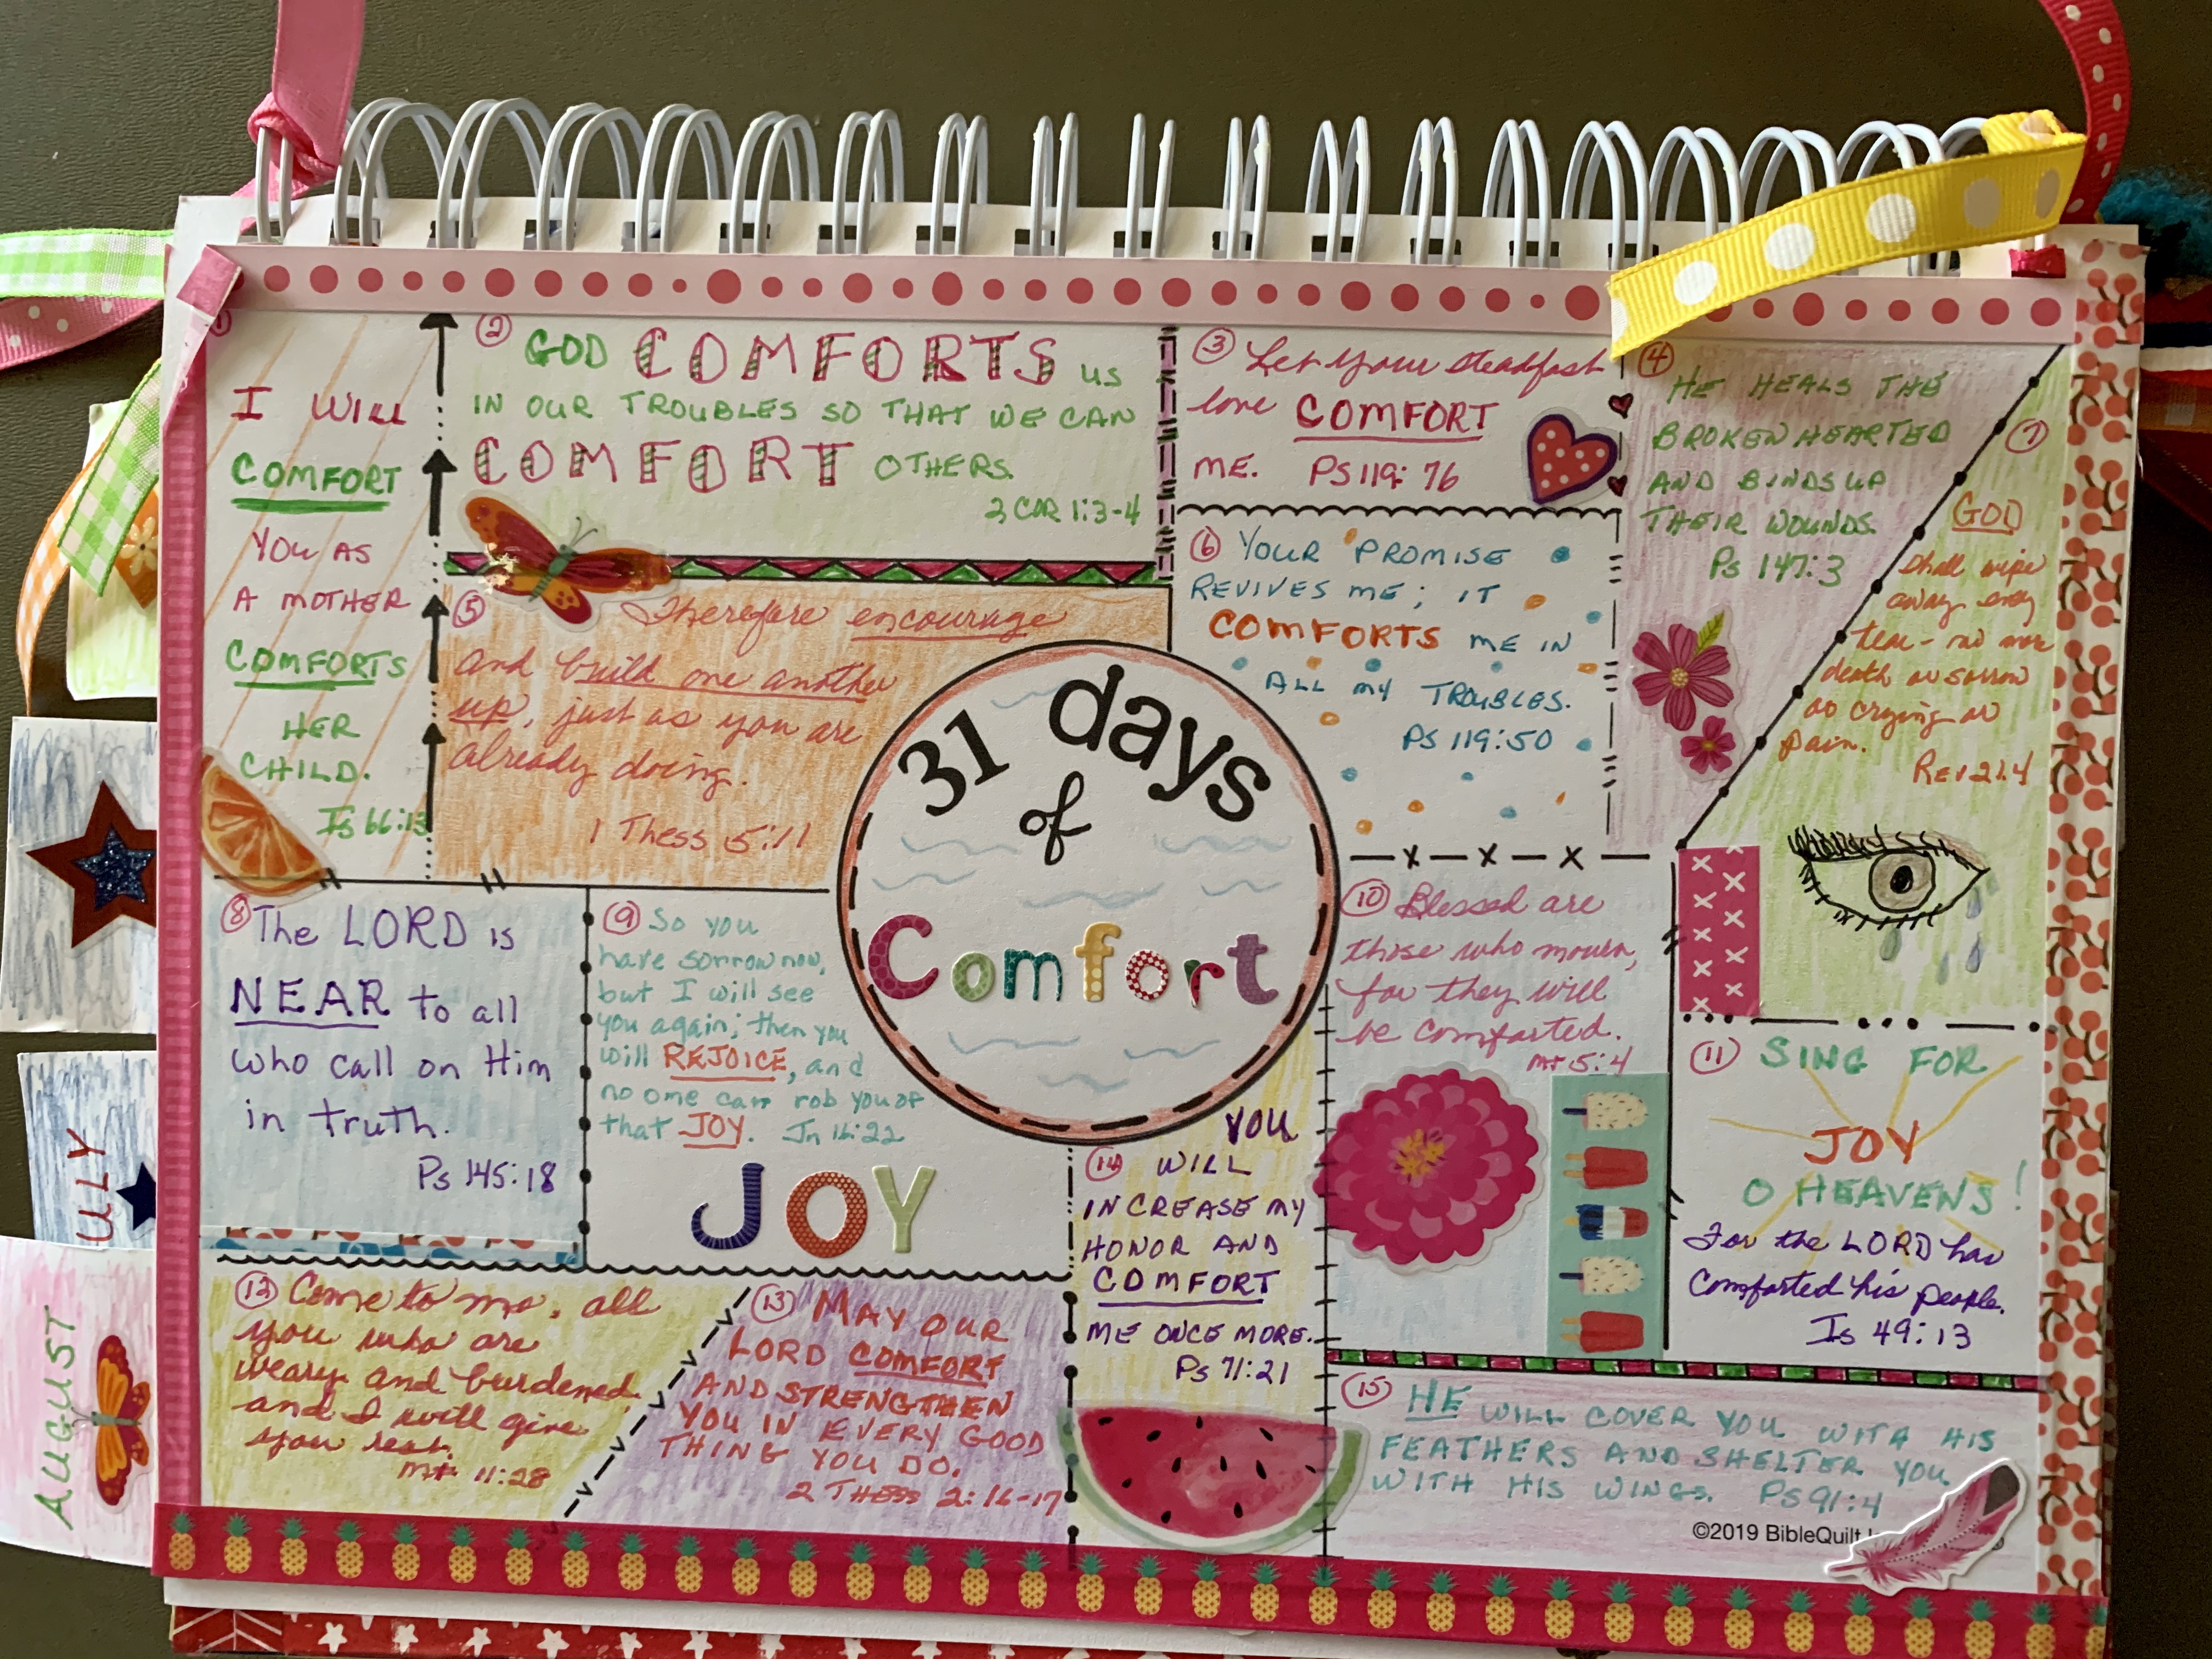 ①
I WILL
COMFORT
YOU AS
A MOTHER
COMFORTS
HER
CHILD.
Is 66:13
② GOD COMFORTS US
IN OUR TROUBLES SO THAT WE CAN
COMFORT OTHERS.
2 COR 1:3-4
③ Let your steadfast
love COMFORT
ME. PS 119:76
④
HE HEALS THE
BROKENHEARTED
AND BINDS UP
THEIR WOUNDS.
Ps 147:3
⑤ Therefore encourage
and build one another
up, just as you are
already doing.
1 Thess 5:11
⑥ YOUR PROMISE
REVIVES ME; IT
COMFORTS ME IN
ALL MY TROUBLES.
PS 119:50
⑦
GOD
shall wipe
away every
tear - no more
death or sorrow
or crying or
pain.
Rev 21:4
31 days
of
Comfort
⑧ The LORD is
NEAR to all
who call on Him
in truth.
Ps 145:18
⑨ So you
have sorrow now,
but I will see
you again; then you
will REJOICE, and
no one can rob you of
that JOY. Jn 16:22
JOY
⑩ Blessed are
those who mourn,
for they will
be comforted.
Mt 5:4
⑪ SING FOR
JOY
O HEAVENS!
For the LORD has
comforted his people.
Is 49:13
⑫ Come to me, all
you who are
weary and burdened,
and I will give
you rest.
Mt 11:28
⑬ MAY OUR
LORD COMFORT
AND STRENGTHEN
YOU IN EVERY GOOD
THING YOU DO.
2 THESS 2:16-17
YOU
⑭ WILL
INCREASE MY
HONOR AND
COMFORT
ME ONCE MORE.
Ps 71:21
⑮ HE WILL COVER YOU WITH HIS
FEATHERS AND SHELTER YOU
WITH HIS WINGS. PS 91:4
©2019 BibleQuilt
ULY
AUGUST